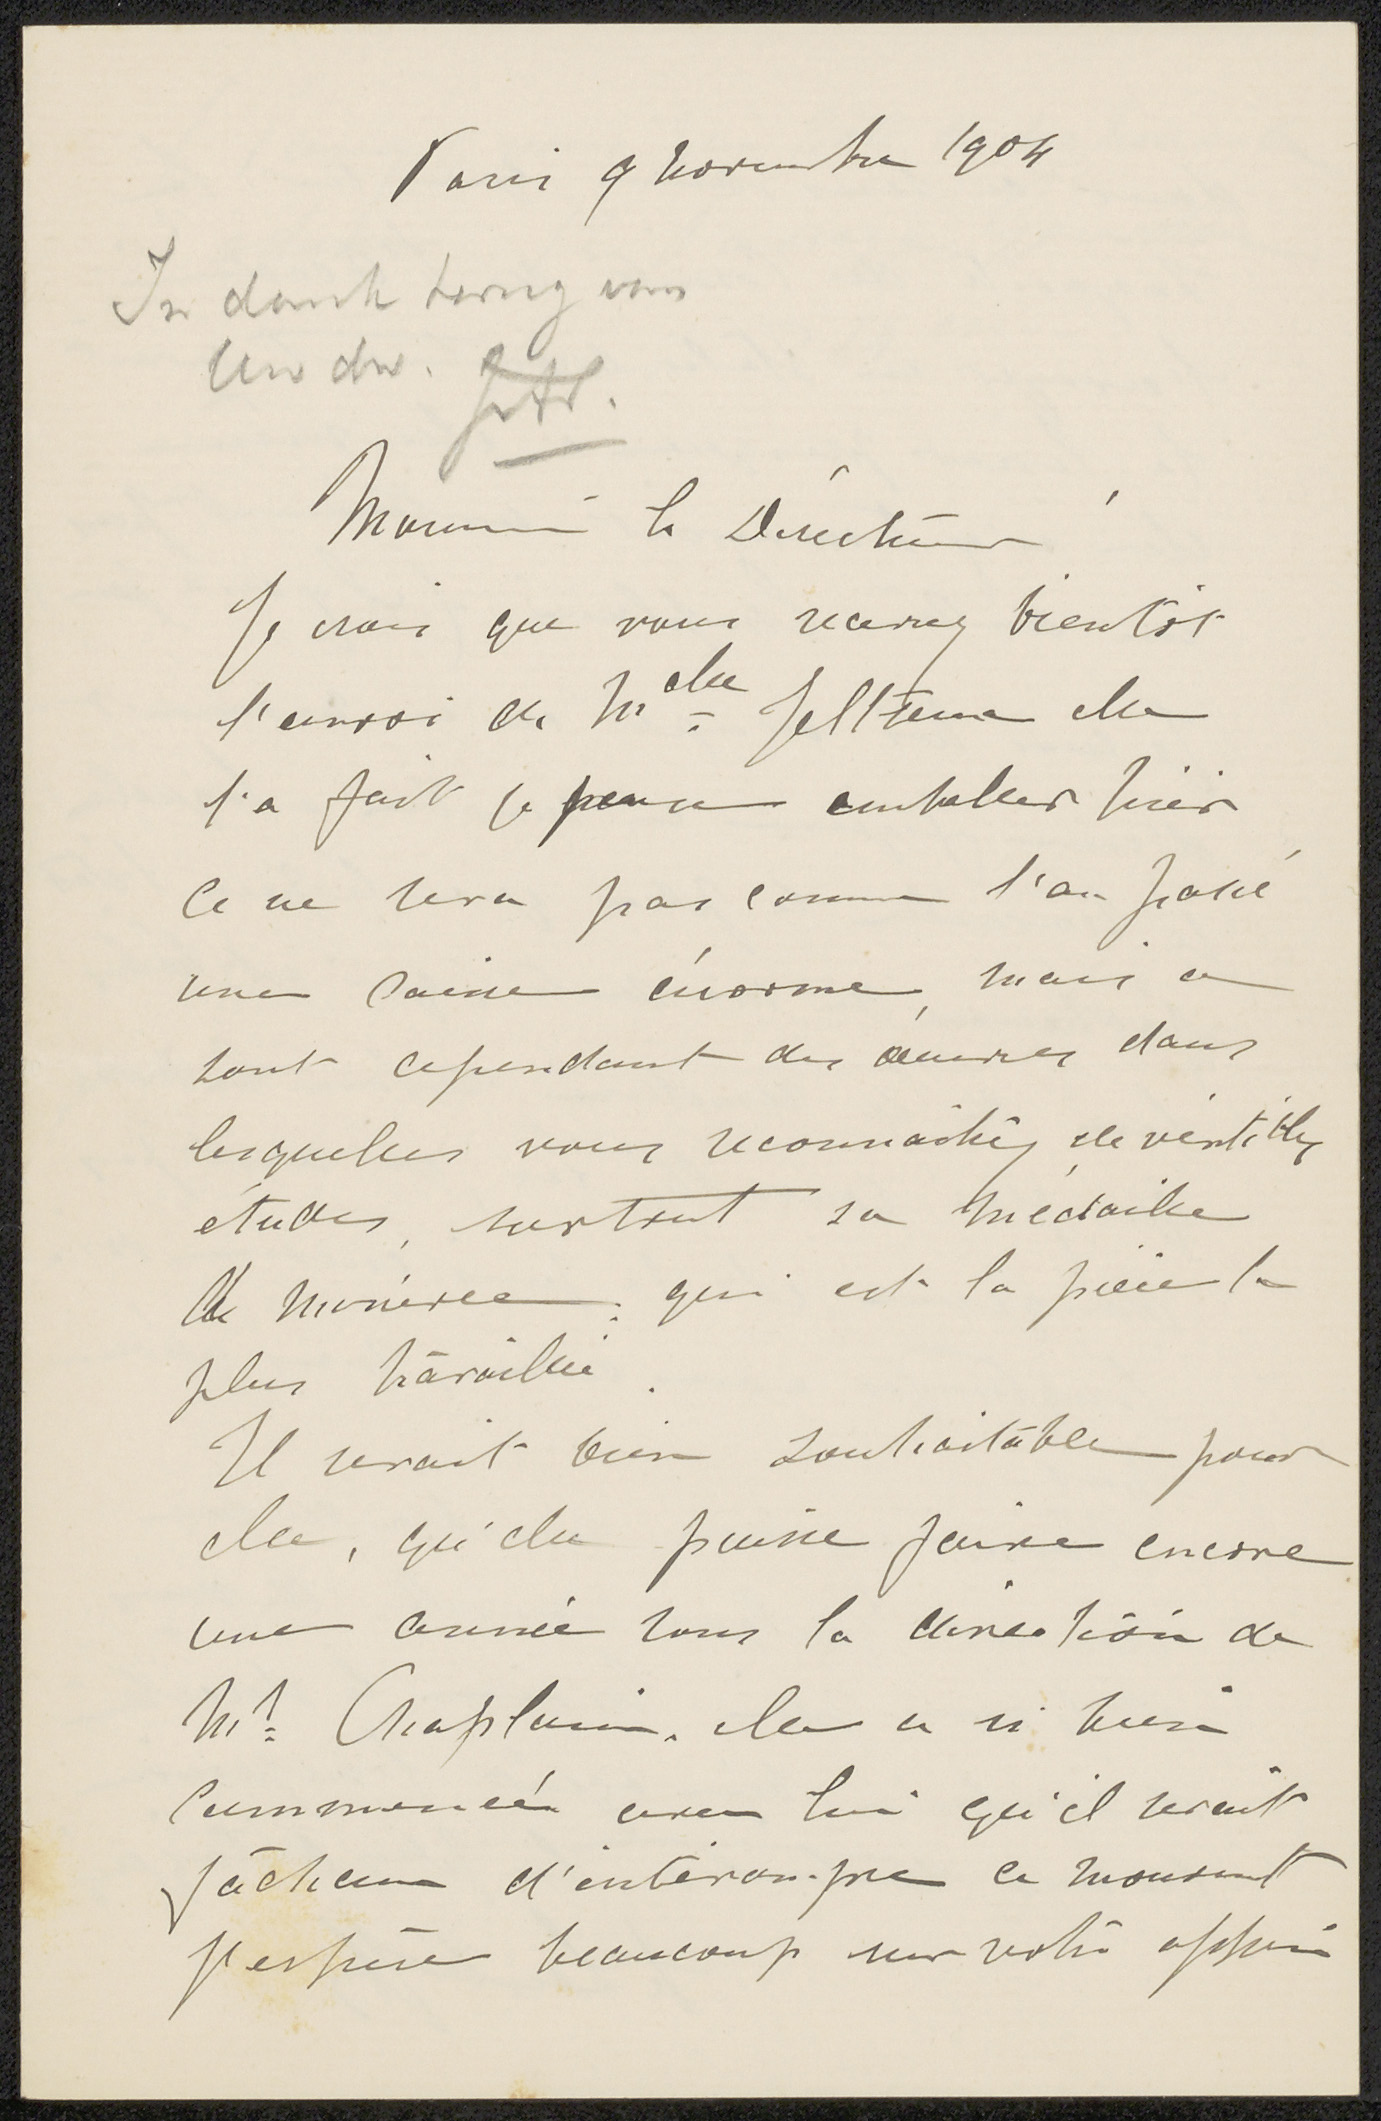 Paris 9 novembre 1904
In dank terug van
Uw dw.
Monsieur le Directeur
Je crois que vous recevrez bientôt
l'envoi de Melle Jeltsema elle
l'a fait je pense emballer hier
Ce ne sera pas comme l'an passé
une caisse énorme, mais ce
sont cependant des œuvres dans
lesquelles vous reconnaîtrez de véritables
études, surtout sa médaille
de Minerve. qui est la pièce la
plus travaillée.
Il serait bien souhaitable pour
elle, qu'elle puisse faire encore
une année sous la direction de
Mr. Chaplain. elle a si bien
commencée avec lui qu'il serait
fâcheux d'interompre ce moment
J'espère beaucoup sur votre appui